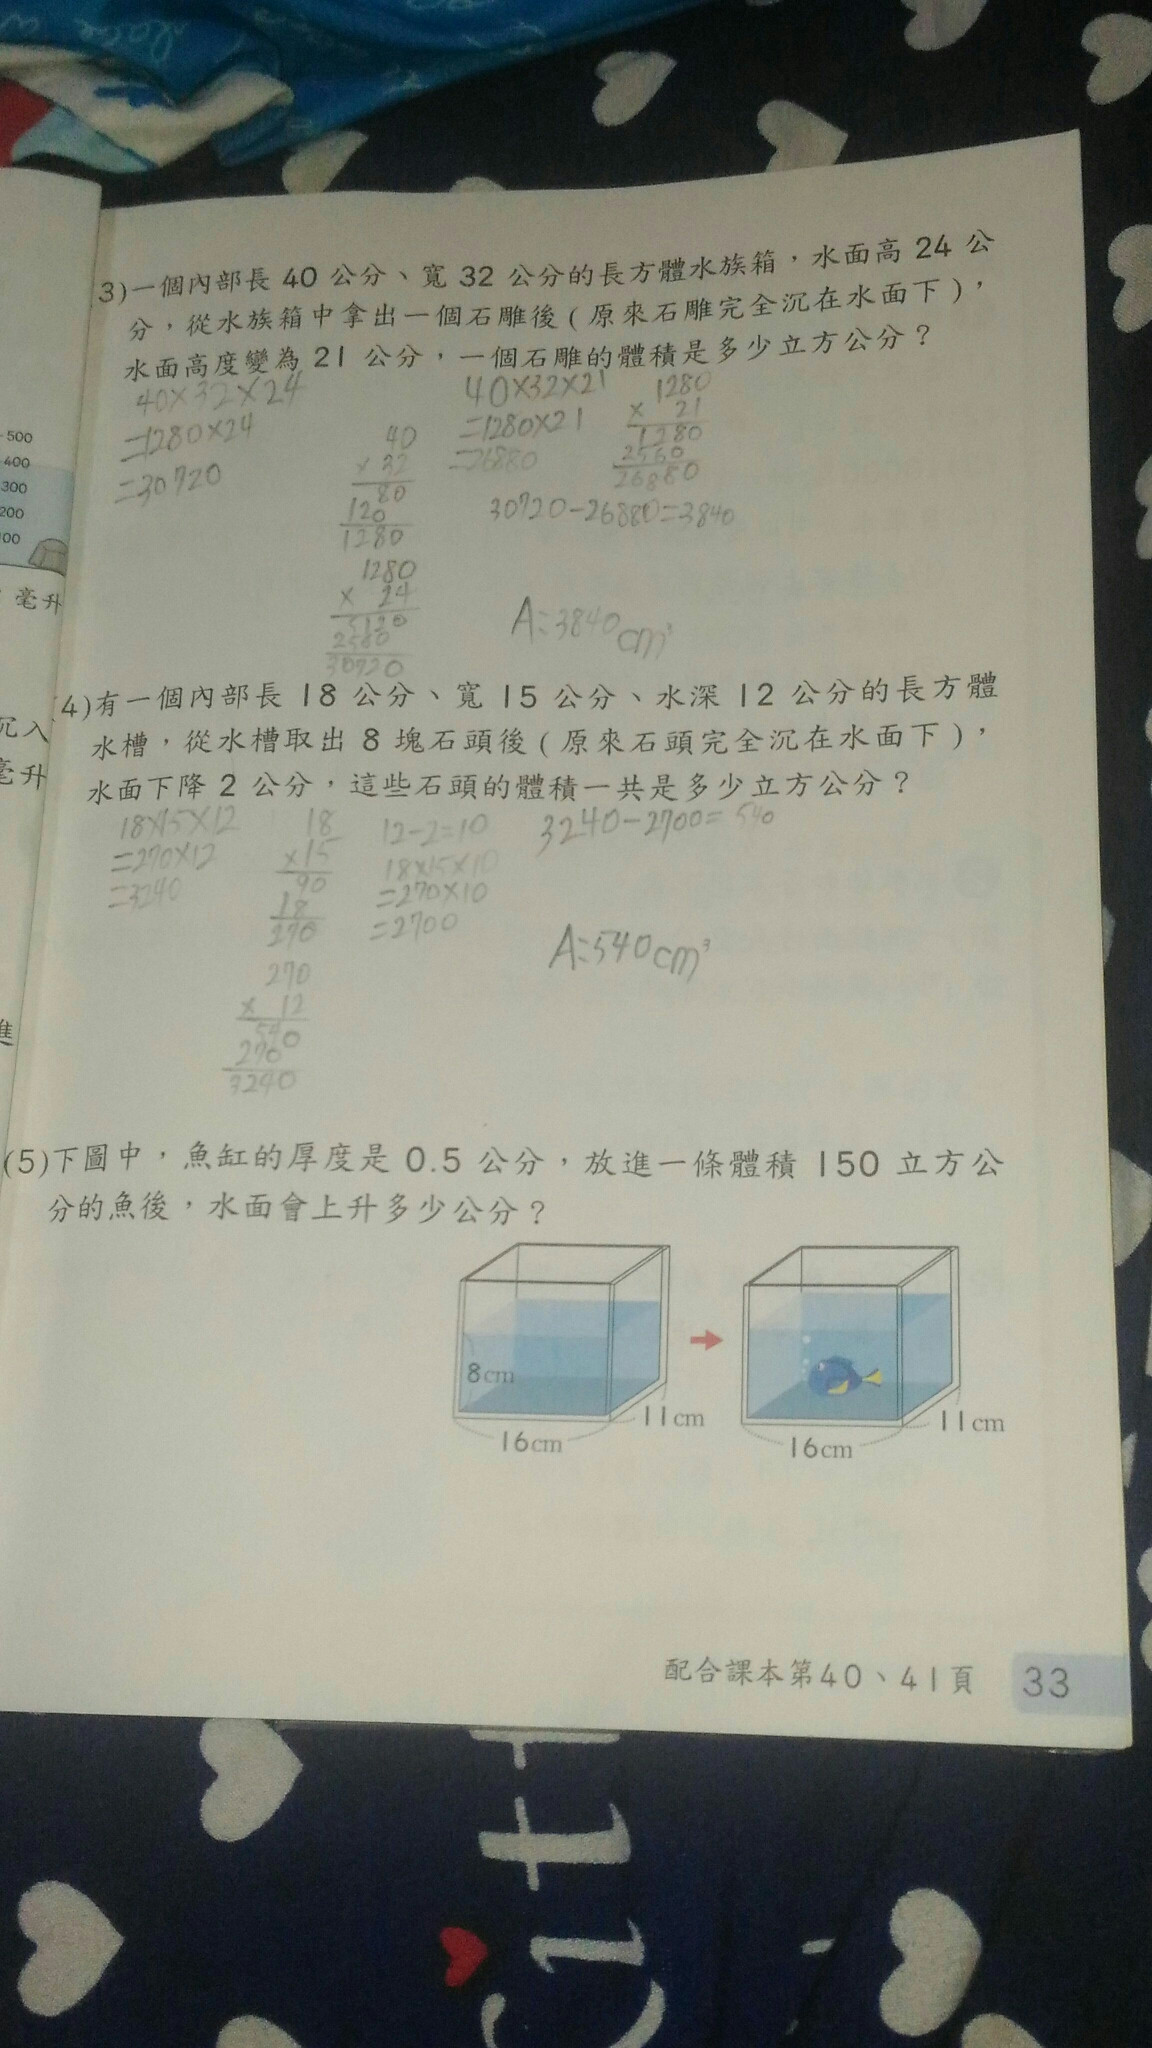 3)一個內部長 40 公分、寬 32 公分的長方體水族箱,水面高 24 公
分,從水族箱中拿出一個石雕後(原來石雕完全沉在水面下),
水面高度變為 21 公分,一個石雕的體積是多少立方公分?
40×32×24
=1280×24
=30720
40
× 32
80
120
1280
1280
× 24
5120
2560
30720
40×32×21
=1280×21
=26880
1280
× 21
1280
2560
26880
30720-26880=3840
A:3840cm³
(4)有一個內部長 18 公分、寬 15 公分、水深 12 公分的長方體
水槽,從水槽取出 8 塊石頭後(原來石頭完全沉在水面下),
水面下降 2 公分,這些石頭的體積一共是多少立方公分?
18×15×12
=270×12
=3240
18
×15
90
18
270
270
× 12
540
270
3240
12-2=10
18×15×10
=270×10
=2700
3240-2700=540
A:540cm³
(5)下圖中,魚缸的厚度是 0.5 公分,放進一條體積 150 立方公
分的魚後,水面會上升多少公分?
8cm
16cm
11cm
16cm
11cm
配合課本第40、41頁
33
500
400
300
200
100
毫升
沉入
毫升
進